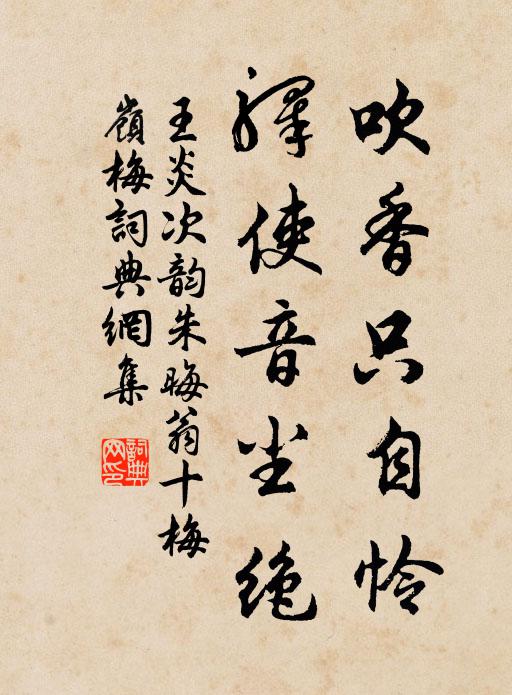 吹香只自怜
驿使音尘绝
王炎次韵朱晦翁十梅
嶺梅詞典網集
詞典网印